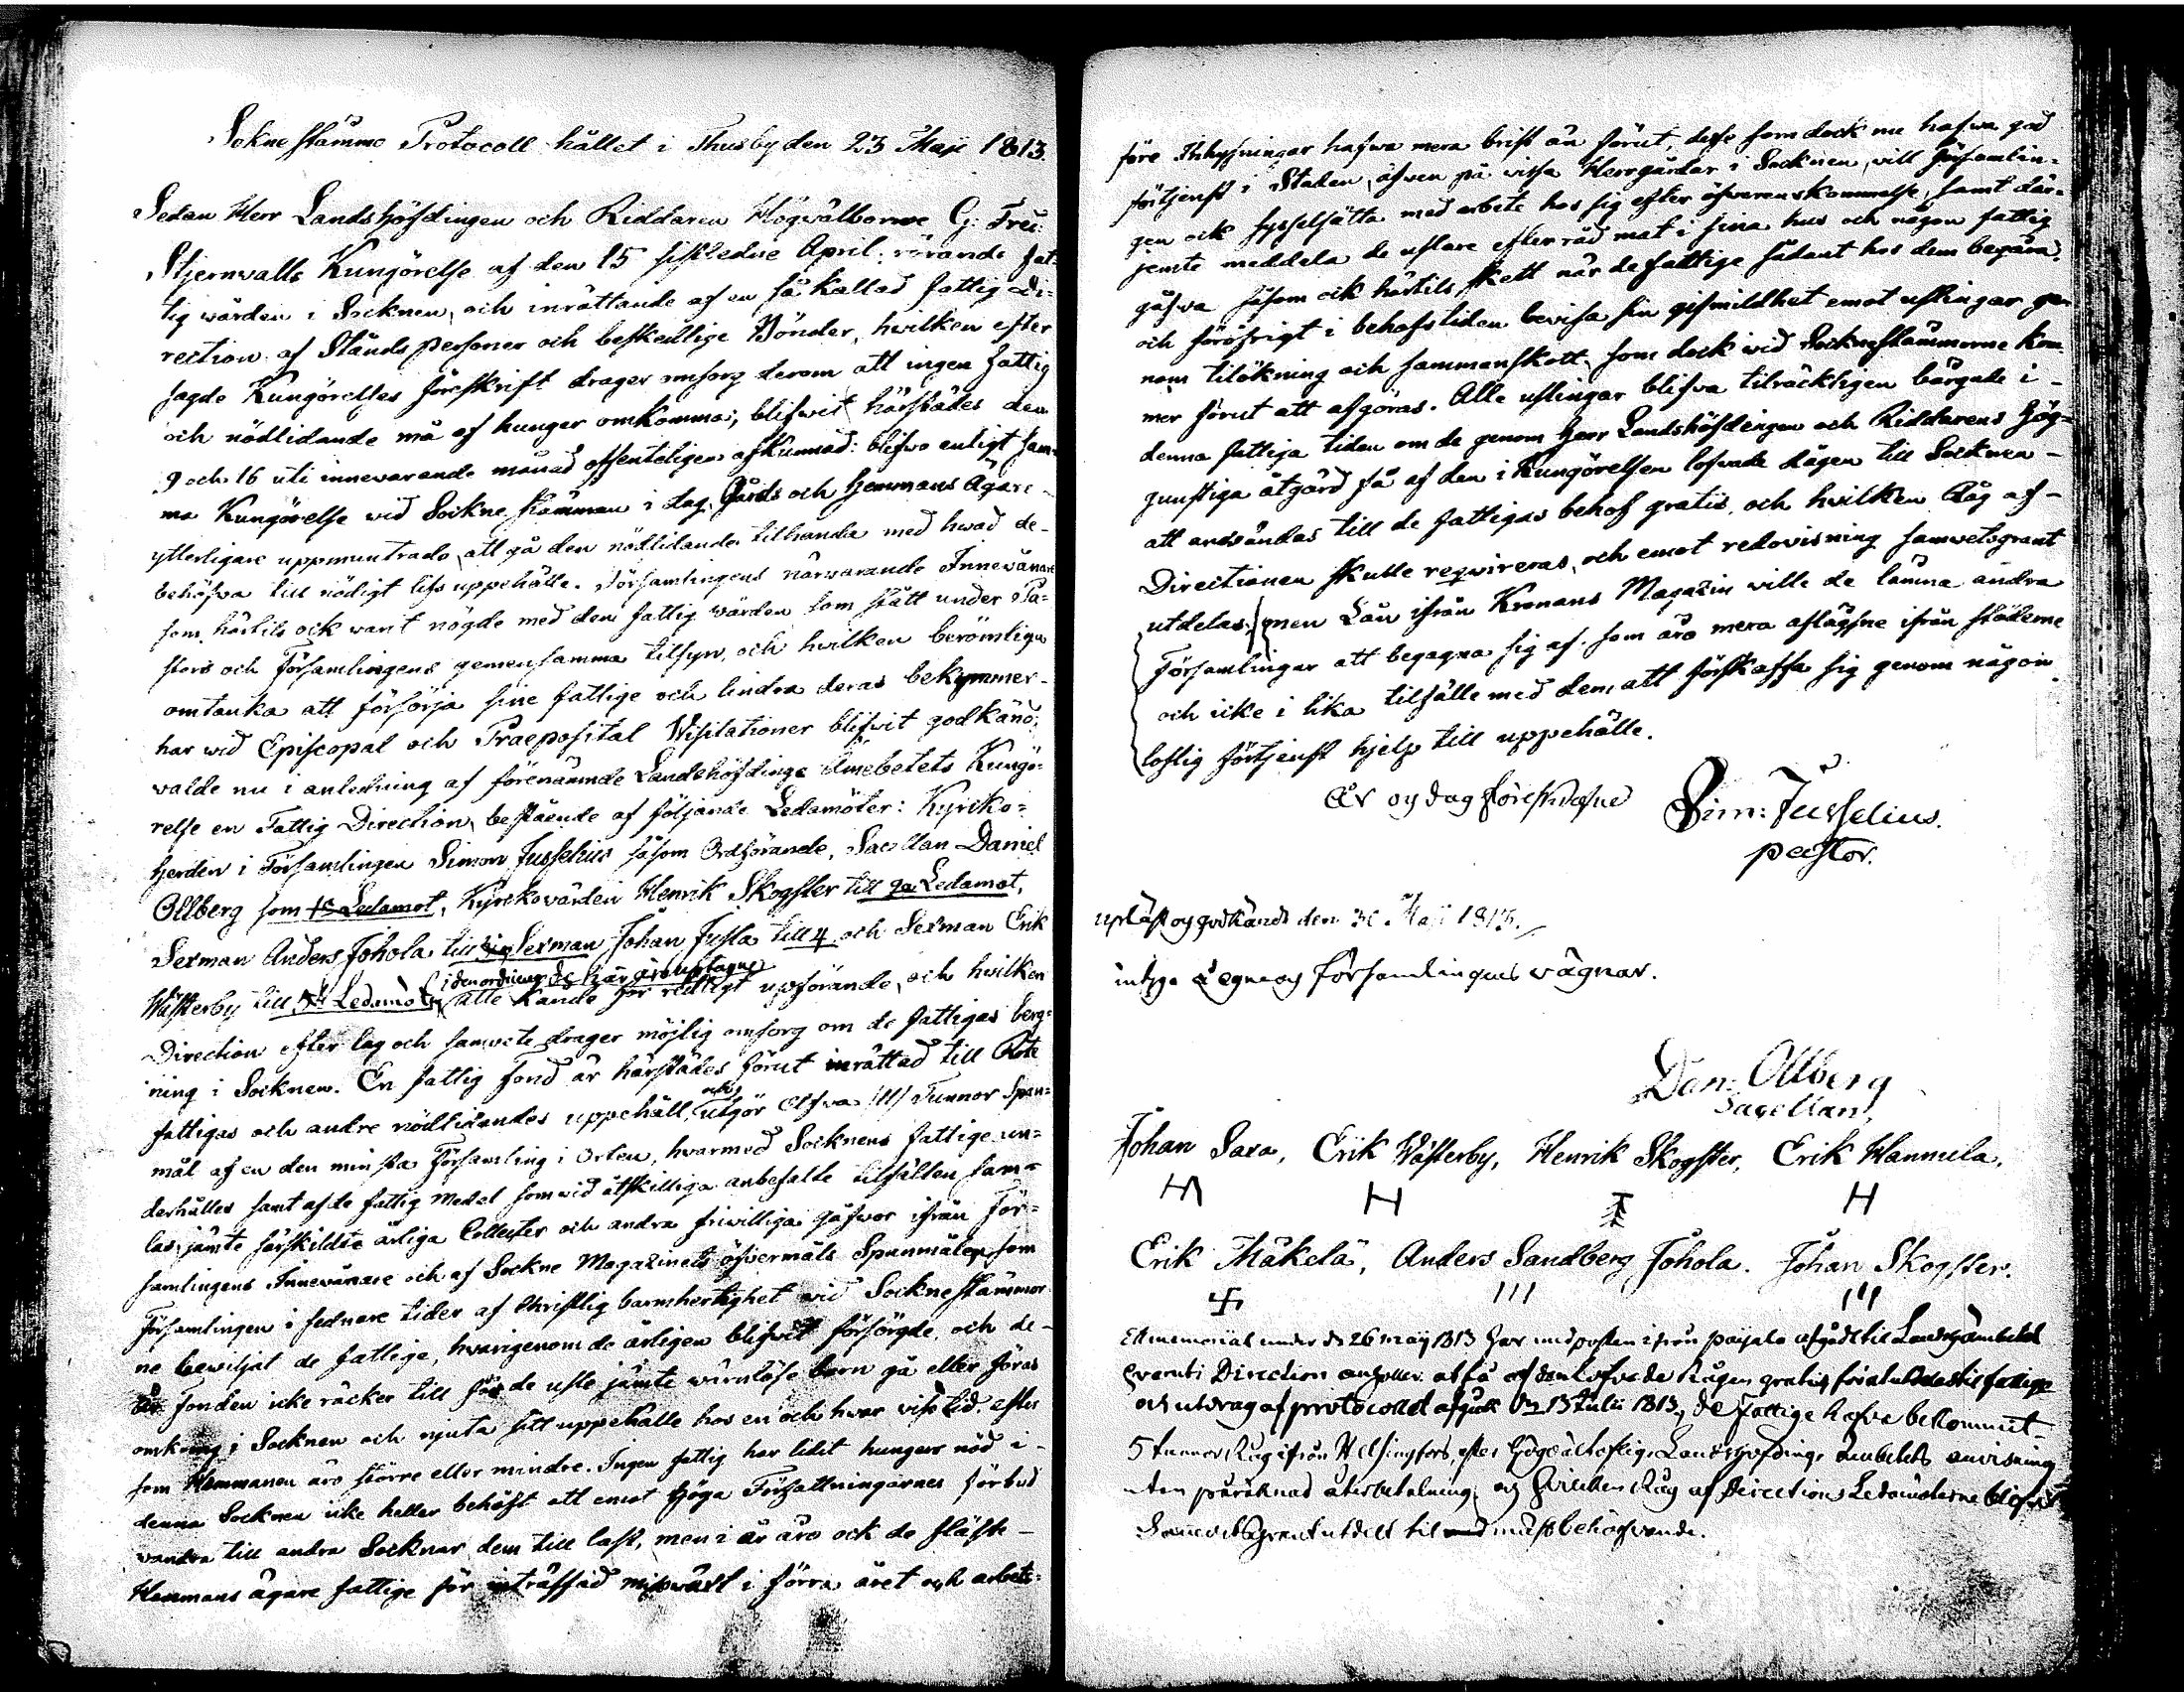 Sokne stämmo Protocoll hållet i Thusby den 23 Maji 1813.
Sedan Herr Landshöfdingen och Riddaren Högvälborne G: Fred:
Stjernvalls Kungörelse af den 15 sistledne April, rörande fat-
tig wården i Socknen, och inrättande af en så kallad fattig Di-
rection af Ståndspersoner och beskedlige Bönder, hvilken efter
sagde Kungörelses föreskrift drager omsorg derom att ingen fattig
och nödlidande må af hunger omkomma; blifwit härstädes den
9 och 16 uti innevarande månad offenteligen afkunnad: blefwo enligt sam-
ma Kungörelse wid Sockne stämman i dag, Gårds och Hemmans Ägare
ytterligare uppmuntrade, att gå den nödlidande tillhanda med hwad de
behöfva till nödigt lifs uppehälle. Församlingens närwarande Innevånare
som härtils ock warit nögde med den fattig wården som stått under Pa-
stors och Församlingens gemensamma tilsyn, och hvilken berömliga
omtanka att försörja sine fattige och lindra deras bekymmer
har wid Episcopal och Praeposital Visitationer blifvit godkänd;
valde nu i anledning af förenämnde Landshöfdinge Ämebetets Kungö-
relse en Fattig Direction, bestående af följande Ledamöter: Kyrko-
herden i Församlingen Simon Jusselius såsom Ordförande, Sacellan Daniel
Ollberg som 1e Ledamot, Kyrkovärden Henrik Skogster till 2a Ledamot,
Sexman Anders Johola till Sexman Johan Jusla till 4 och Sexman Erik
i den ordning de här äro uptagne
Wästerby till 5te Ledamot, alle kände för redligt upförande, och hvilken
Direction efter lag och samvete drager möjlig omsorg om de fattigas berg-
ning i Socknen. En fattig fond är härstädes förut inrättad till Rote
och
fattigas och andre nödlidandes uppehåll, utgör Elfva /11/ Tunnor Span-
mål af en den minsta Församling i Orten, hvarmed Socknens fattige un-
derhålles samt af de fattig Medel som wid åtskilliga anbefalte tilfällen sam-
las, jämte särskildte årliga Collecter och andra friwilliga gåfwor ifrån För-
samlingens Innevånare och af Sockne Magazinets öfvermåls Spanmålen, som
Församlingen i sednare tider af Christlig barmhertighet wid Sockne stämmor
ne bewiljat de fattige, hwarigenom de årligen blifvit försörgde, och de
är Fonden icke räcker till för de usle jämte wärnlöse barn gå eller föras
omkring i Socknen och njuta sitt uppehälle hos en och hwar viss tid, efter
som Hemmanen äro större eller mindre. Ingen fattig har lidit hungers nöd i
denna Socknen icke heller behöft att emot Höga Författningarnes förbud
vandra till andra Socknar dem till last, men i år äro ock de fläste
Hemmans ägare fattige för inträffad missväxt i förra året och arbets-
före Inhysningar hafwa mera brist än förut, desse som dock nu hafwa god
förtjenst i Staden, äfwen på wissa Herrgårdar i Socknen, will Församlin-
gen ock sysselsätta med arbete hos sig efter öfwerenskommelse, samt där-
jemte meddela de uslare efter råd mat i sina hus och någon fattig
gåfwa såsom ock härtils skett när de fattige sådant hos dem begära,
och föröfrigt i behofstiden bevisa sin gifmildhet emot uslingar ge-
nom tilökning och sammanskott, som dock wid Socknestämmorne kom-
mer förut att afgöras. Alle uslingar blifva tilräckligen bärgade i
denna fattiga tiden om de genom Herr Landshöfdingen och Riddarens Hög-
gunstiga åtgärd få af den i Kungörelsen lofvade Rågen till Socknen
att användas till de fattigas behof gratis, och hvilken Råg af
Directionen skulle reqvireras, och emot redovisning samvetsgrant
utdelas; men Lån ifrån Kronans Magazin wille de lämna andra
Församlingar att begagna sig af, som äro mera aflägsne ifrån städerne
och icke i lika tilfälle med dem, att förskaffa sig genom någon
loflig förtjenst hjelp till uppehälle.
År og dag föreskrefne
Sim: Jusselius.
pastor.
upläst og godkändt den 30 Maji 1813.
intyga å egne og församlingens vägnar.
Dan: Ollberg
Sacellan.
Johan Sara, Erik Wästerby, Henrik Skogster, Erik Hannula.
Erik Mäkelä, Anders Sandberg Johola. Johan Skogster.
Ett memorial under d: 26 maij 1813 har med posten ifrån pajala afgådt til Landshöfdinge ämbetet
hvaruti Direction anholler at få af den lofvade Rågen gratis för at utdelas til fattige
och utdrag af protocollet afgick d: 13 Julii 1813, de fattige hafva bekommit
5 tunnor Råg ifrån Helsingfors, efter Högvälloflige Landshöfdinge Embetets anvisning
utan påräknad återbetalning, og hvilken Råg af Directions Ledamöterne blifvit
Samvetsgrant utdelt til mäst behöfvande.